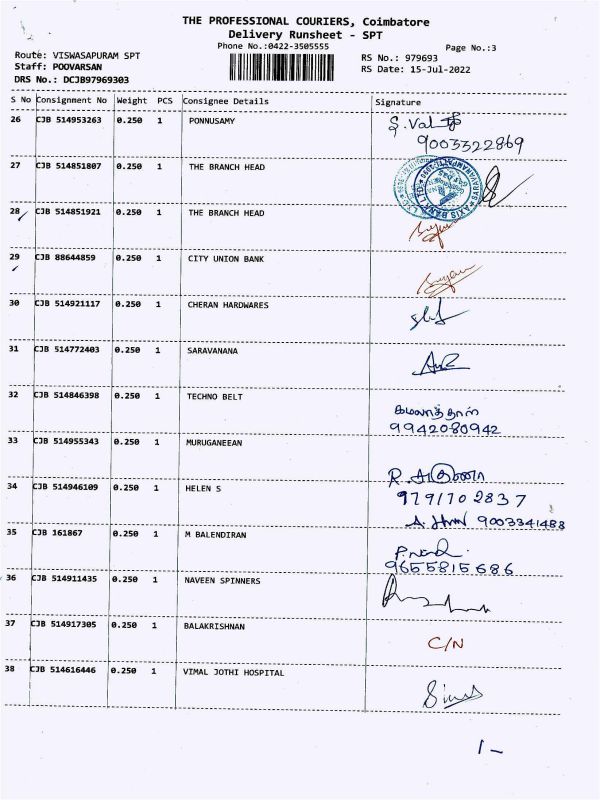 THE PROFESSIONAL COURIERS, Coimbatore
Delivery Runsheet - SPT
Phone No.:0422-3505555
Page No.:3
Route: VISWASAPURAM SPT
RS No.: 979693
Staff: POOVARSAN
RS Date: 15-Jul-2022
DRS No.: DCJB97969303
S No Consignment No Weight PCS Consignee Details Signature
26 CJB 514953263 0.250 1 PONNUSAMY
9003322869
27 CJB 514851807 0.250 1 THE BRANCH HEAD
AXIS BANK LTD
28 CJB 514851921 0.250 1 THE BRANCH HEAD
29 CJB 88644859 0.250 1 CITY UNION BANK
30 CJB 514921117 0.250 1 CHERAN HARDWARES
31 CJB 514772403 0.250 1 SARAVANANA
32 CJB 514846398 0.250 1 TECHNO BELT
கமலாத்தாள்
9942080942
33 CJB 514955343 0.250 1 MURUGANEEAN
34 CJB 514946109 0.250 1 HELEN S
R. அருணா
979170 2837
9003341488
35 CJB 161867 0.250 1 M BALENDIRAN
9655815686
36 CJB 514911435 0.250 1 NAVEEN SPINNERS
37 CJB 514917305 0.250 1 BALAKRISHNAN
C/N
38 CJB 514616446 0.250 1 VIMAL JOTHI HOSPITAL